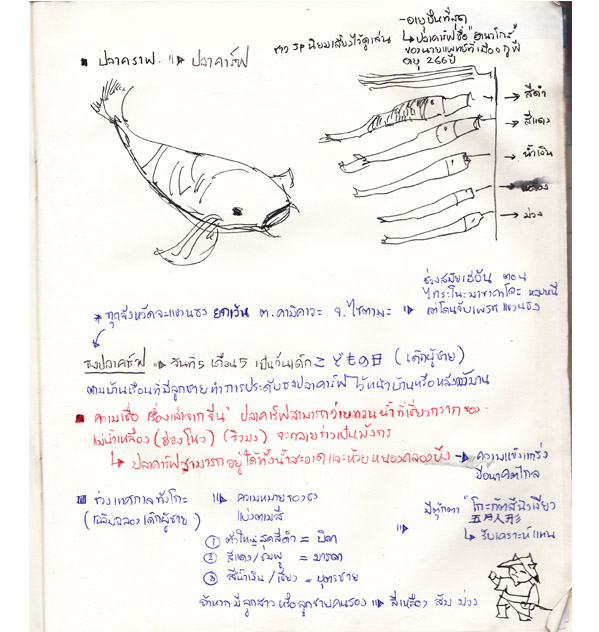 - อายุยืนที่สุด
↳ ปลาคาร์ฟชื่อ "ฮานาโกะ"
ของนายแพทย์ที่เมืองกูฟี
อายุ 266 ปี
ชาว JP นิยมเลี้ยงไว้ดูเล่น
■ ปลาคราฟ. ⇒ ปลาคาร์ฟ
→ สีดำ
→ สีแดง
→ น้ำเงิน
→ ม่วง
ช่วงสมัยเฮอัน ตอน
แต่โดนจับเพราะแขวนธง
* ทุกจังหวัดจะแขวนธง ยกเว้น ต.คามิคาวะ จ.ไซตามะ ⇒
ธงปลาคาร์ฟ → วันที่5 เดือน5 เป็นวันเด็ก こどもの日 (เด็กผู้ชาย)
ตามบ้านเรือนที่มีลูกชาย ทำการประดับธงปลาคาร์ฟ ไว้หน้าบ้านหรือหลังคาบ้าน
■ ความเชื่อ เรื่องเล่าจากจีน" ปลาคาร์ฟสามารถว่ายทวนน้ำที่เชี่ยวกรากของ
แม่น้ำเหลือง (ฮวงโหว) จะกลายร่างเป็นมังกร
↳ ปลาคาร์ฟสามารถอยู่ได้ทั้งน้ำสะอาดและห้วยหนองคลองบึง → ความแข็งแกร่ง
มีอนาคตไกล
■ ช่วงเทศกาลทังโกะ ⇒ ความหมายของธง
(เฉลิมฉลองเด็กผู้ชาย) แบ่งตามสี
⇒ มีตุ๊กตา "โกะกัตสึนิงเงียว
五月人形
↳ รับเคราะห์แทน
① ตัวใหญ่สุดสีดำ = บิดา
② สีแดง/ชมพู = มารดา
③ สีน้ำเงิน/เขียว = บุตรชาย
ถ้าหากมีลูกสาว หรือลูกชายคนรอง ⇒ สีเหลือง ส้ม ม่วง